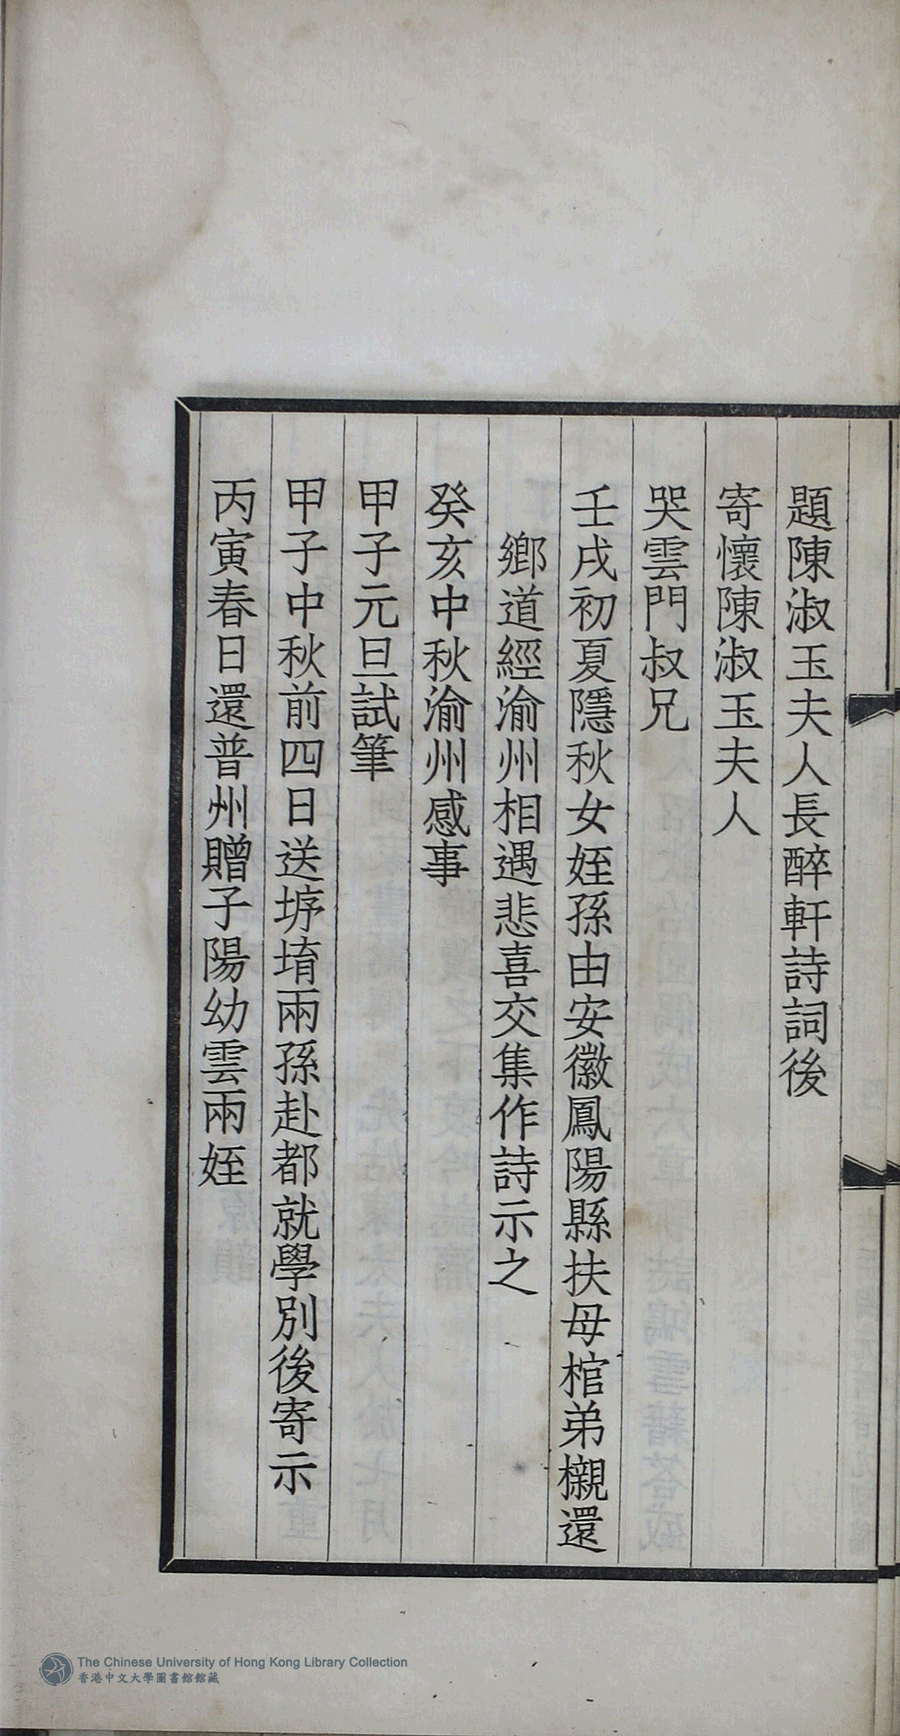 題陳淑玉夫人長醉軒詩詞後
寄懷陳淑玉夫人
哭雲門叔兄
壬戌初夏隱秋女姪孫由安徽鳳陽縣扶母棺弟櫬還
鄉道經渝州相遇悲喜交集作詩示之
癸亥中秋渝州感事
甲子元旦試筆
甲子中秋前四日送垿堉兩孫赴都就學別後寄示
丙寅春日還普州贈子陽幼雲兩姪
The Chinese University of Hong Kong Library Collection
香港中文大學圖書館館藏